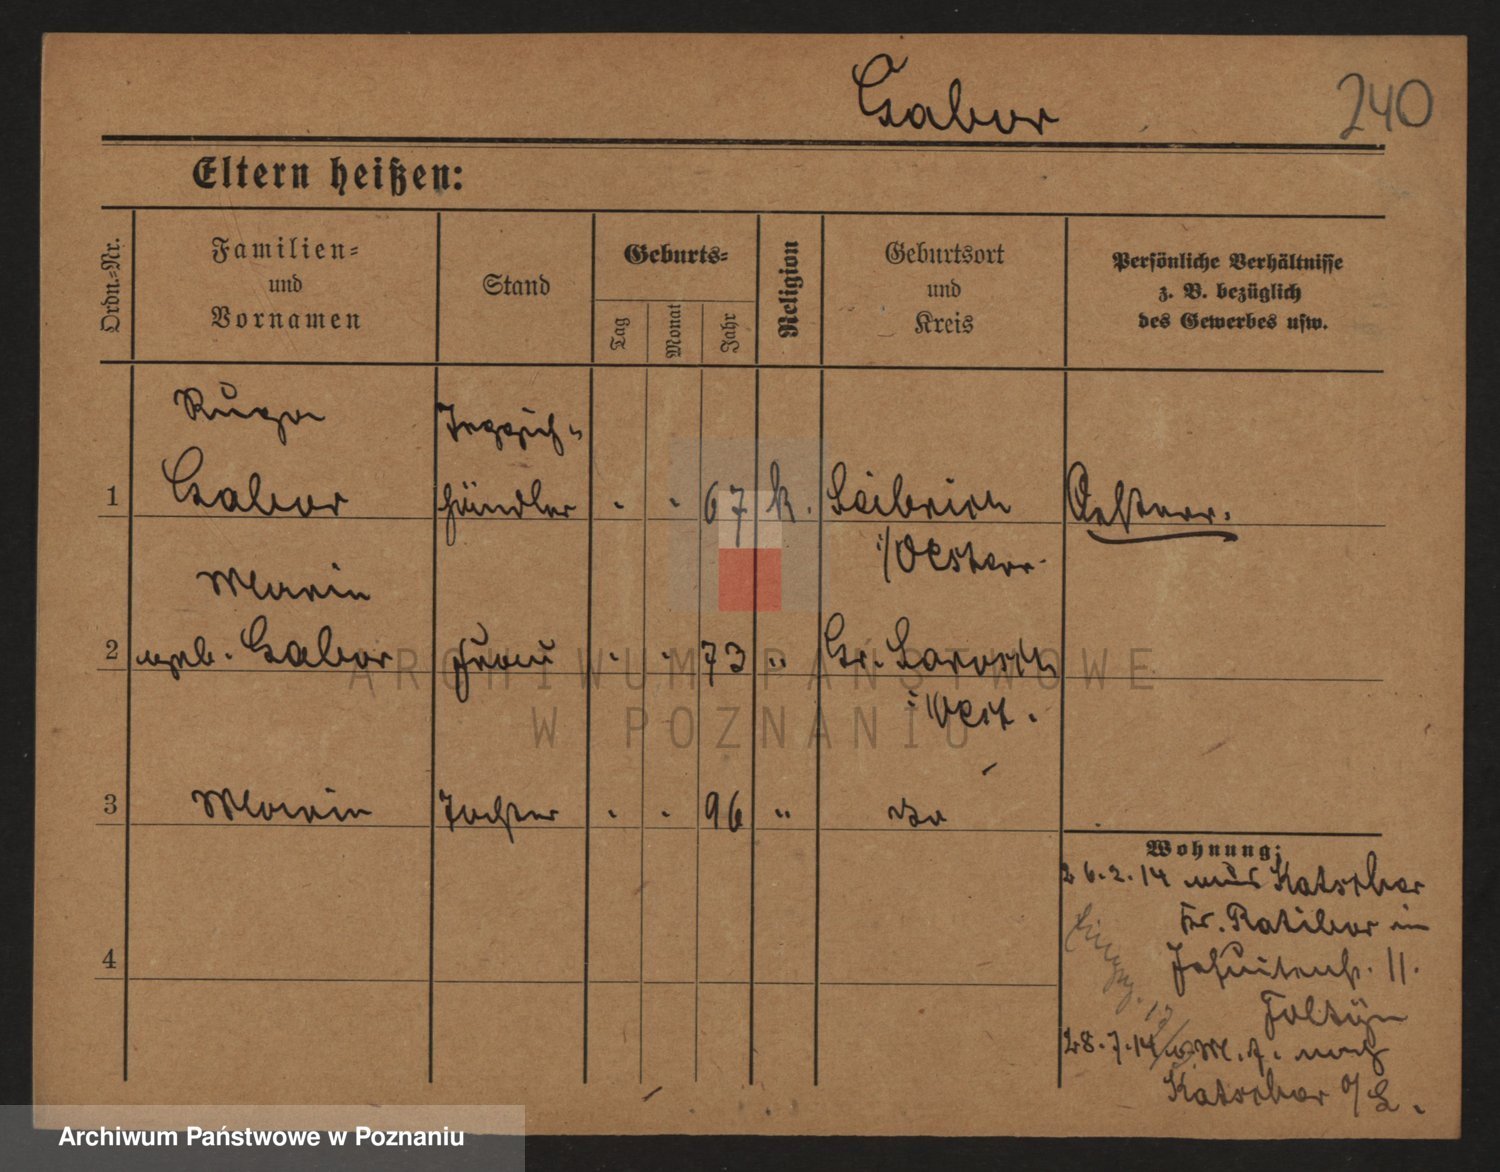 Gabor
240
Eltern heißen:
Ordn.-Nr.
Familien-
und
Vornamen
Stand
Geburts-
Tag
Monat
Jahr
Religion
Geburtsort
und
Kreis
Persönliche Verhältnisse
z. B. bezüglich
des Gewerbes usw.
Teppich-
1 Gabor händler " " 67 k. Oesterr.
i/Oesterr.
Marie
2 geb. Gabor Frau " " 73 " Gr.
i/Oest.
3 Marie Tochter " " 96 " Da
4
Wohnung:
26.2.14 aus Katscher
Kr. Ratibor in
Jesuitenstr. 11.
Foltyn
28.7.14 m. M. T. nach
Katscher O/S.
ARCHIWUM PAŃSTWOWE
W POZNANIU
Archiwum Państwowe w Poznaniu